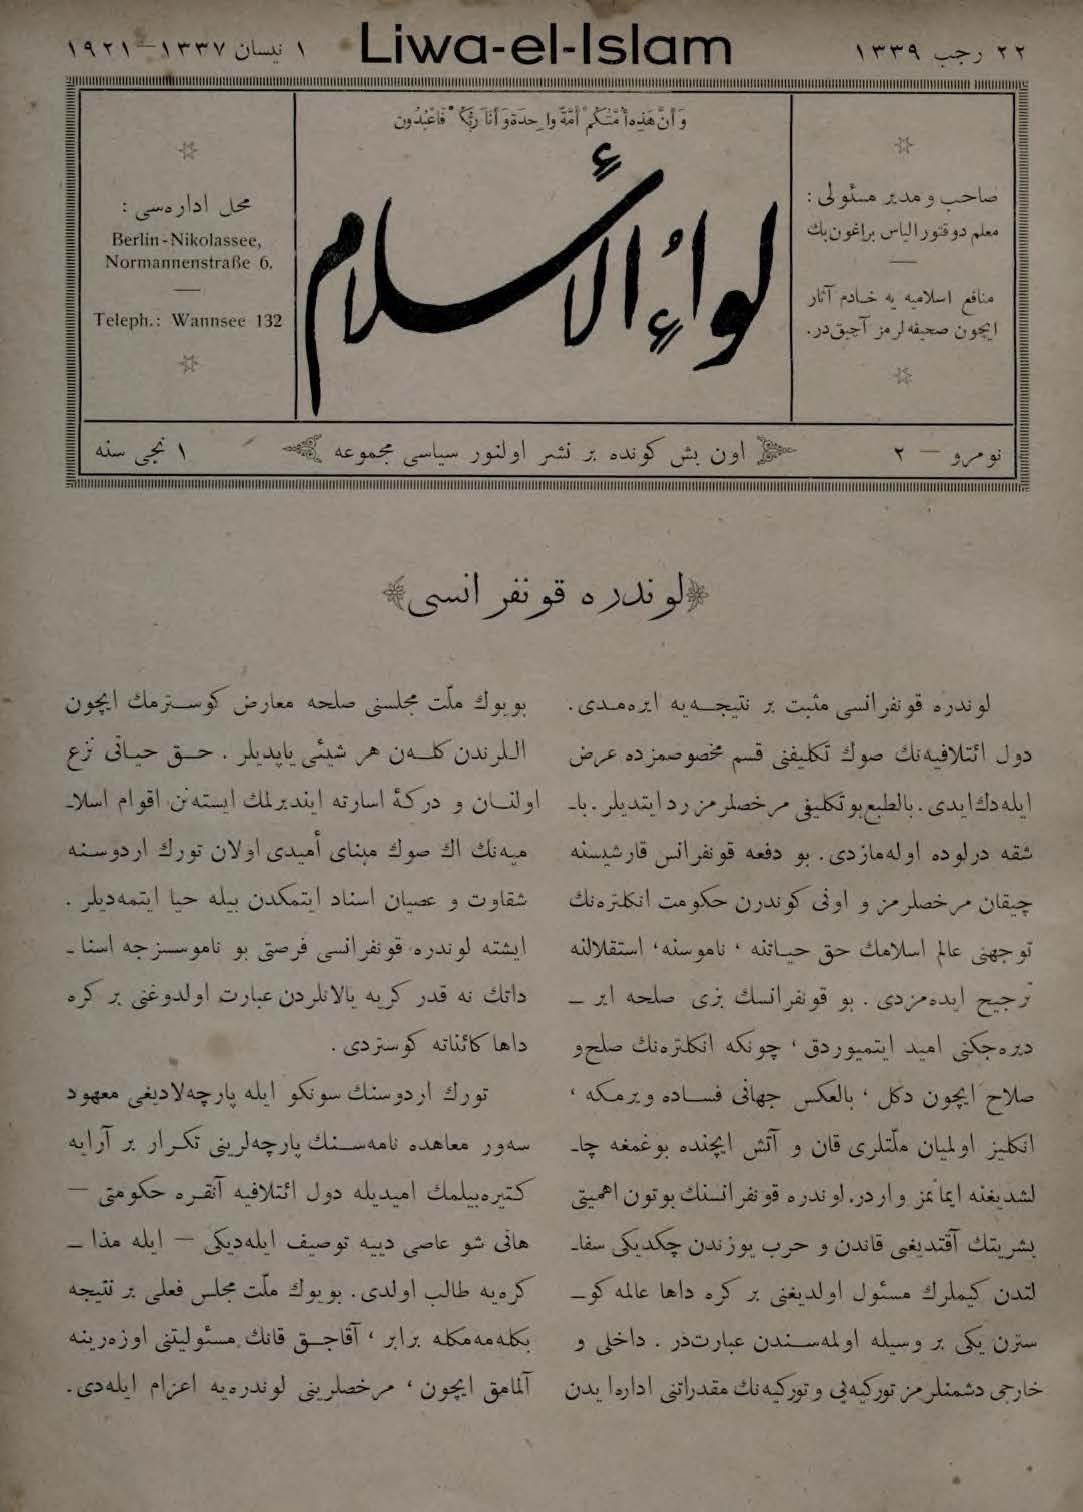 ٢٢ رجب ١٣٣٩
Liwa-el-Islam
١ نیسان ١٣٣٧ — ١٩٢١
صاحب و مدیر مسئولی :
معلم دوقتور الیاس براغون بك
—
منافع اسلامیه یه خادم آثار
ایچون صحیفه لرمز آچیق در.
وَأَنَّ هَذِهِ أُمَّتُكُمْ أُمَّةً وَاحِدَةً وَأَنَا رَبُّكُمْ فَاعْبُدُونِ
لواء الأسلام
محل اداره سی :
Berlin-Nikolassee,
Normannenstraße 6.
—
Teleph.: Wannsee 132
نومرو — ٢
اون بش كونده بر نشر اولنور سیاسی مجموعه
١ نجی سنه
لوندره قونفرانسی
لوندره قونفرانسی مثبت بر نتیجه‌یه ایره‌مدی.
دول ائتلافیه‌نك صوك تكلیفنی قسم مخصوصمزده عرض
ایله‌دك ایدی. بالطبع بو تكلیفی مرخصلرمز رد ایتدیلر. با-
شقه درلوده اوله‌مازدی. بو دفعه قونفرانس قارشیسنه
چیقان مرخصلرمز و اونی كوندرن حكومت انكلتره‌نك
توجهنی عالم اسلامك حق حیاتنه ، ناموسنه ، استقلالنه
ترجیح ایده‌مزدی. بو قونفرانسك بزی صلحه ایر —
دیره‌جكنی امید ایتمیوردق ، چونكه انكلتره‌نك صلح و
صلاح ایچون دكل ، بالعكس جهانی فساده ویرمكه ،
انكلیز اولمیان ملّتلری قان و آتش ایچنده بوغمغه چا-
لشدیغنه ایمانمز واردر. لوندره قونفرانسنك بوتون اهمیتی
بشریتك آقتدیغی قاندن و حرب یوزندن چكدیكی سفا-
لتدن كیملرك مسئول اولدیغنی بر كره داها عالمه كو —
سترن یكی بر وسیله اولمه‌سندن عبارت‌در . داخلی و
خارجی دشمنلرمز توركیه‌یی و توركیه‌نك مقدراتنی اداره ایدن
بویوك ملّت مجلسنی صلحه معارض كوسترمك ایچون
اللرندن كله‌ن هر شیئی یاپدیلر . حق حیاتی نزع
اولنان و دركهٔ اسارته ایندیرلمك ایسته‌نن اقوام اسلا-
میه‌نك اك صوك مبنای أمیدی اولان تورك اردوسنه
شقاوت و عصیان اسناد ایتمكدن بیله حیا ایتمه‌دیلر .
ایشته لوندره قونفرانسی فرصتی بو ناموسسزجه اسنا-
داتك نه قدر كریه یالانلردن عبارت اولدوغنی بر كره
داها كائناته كوستردی .
تورك اردوسنك سونكو ایله پارچه‌لادیغی معهود
سه‌ور معاهده نامه‌سنك پارچه‌لرینی تكرار بر آرایه
كتیره‌بیلمك امیدیله دول ائتلافیه آنقره حكومتی —
هانی شو عاصی دییه توصیف ایله‌دیكی — ایله مذا —
كره‌یه طالب اولدی. بویوك ملّت مجلس فعلی بر نتیجه
بكله‌مه‌مكله برابر ، آقاجق قانك مسئولیتنی اوزه‌رینه
آلمامق ایچون ، مرخصلرینی لوندره‌یه اعزام ایله‌دی.